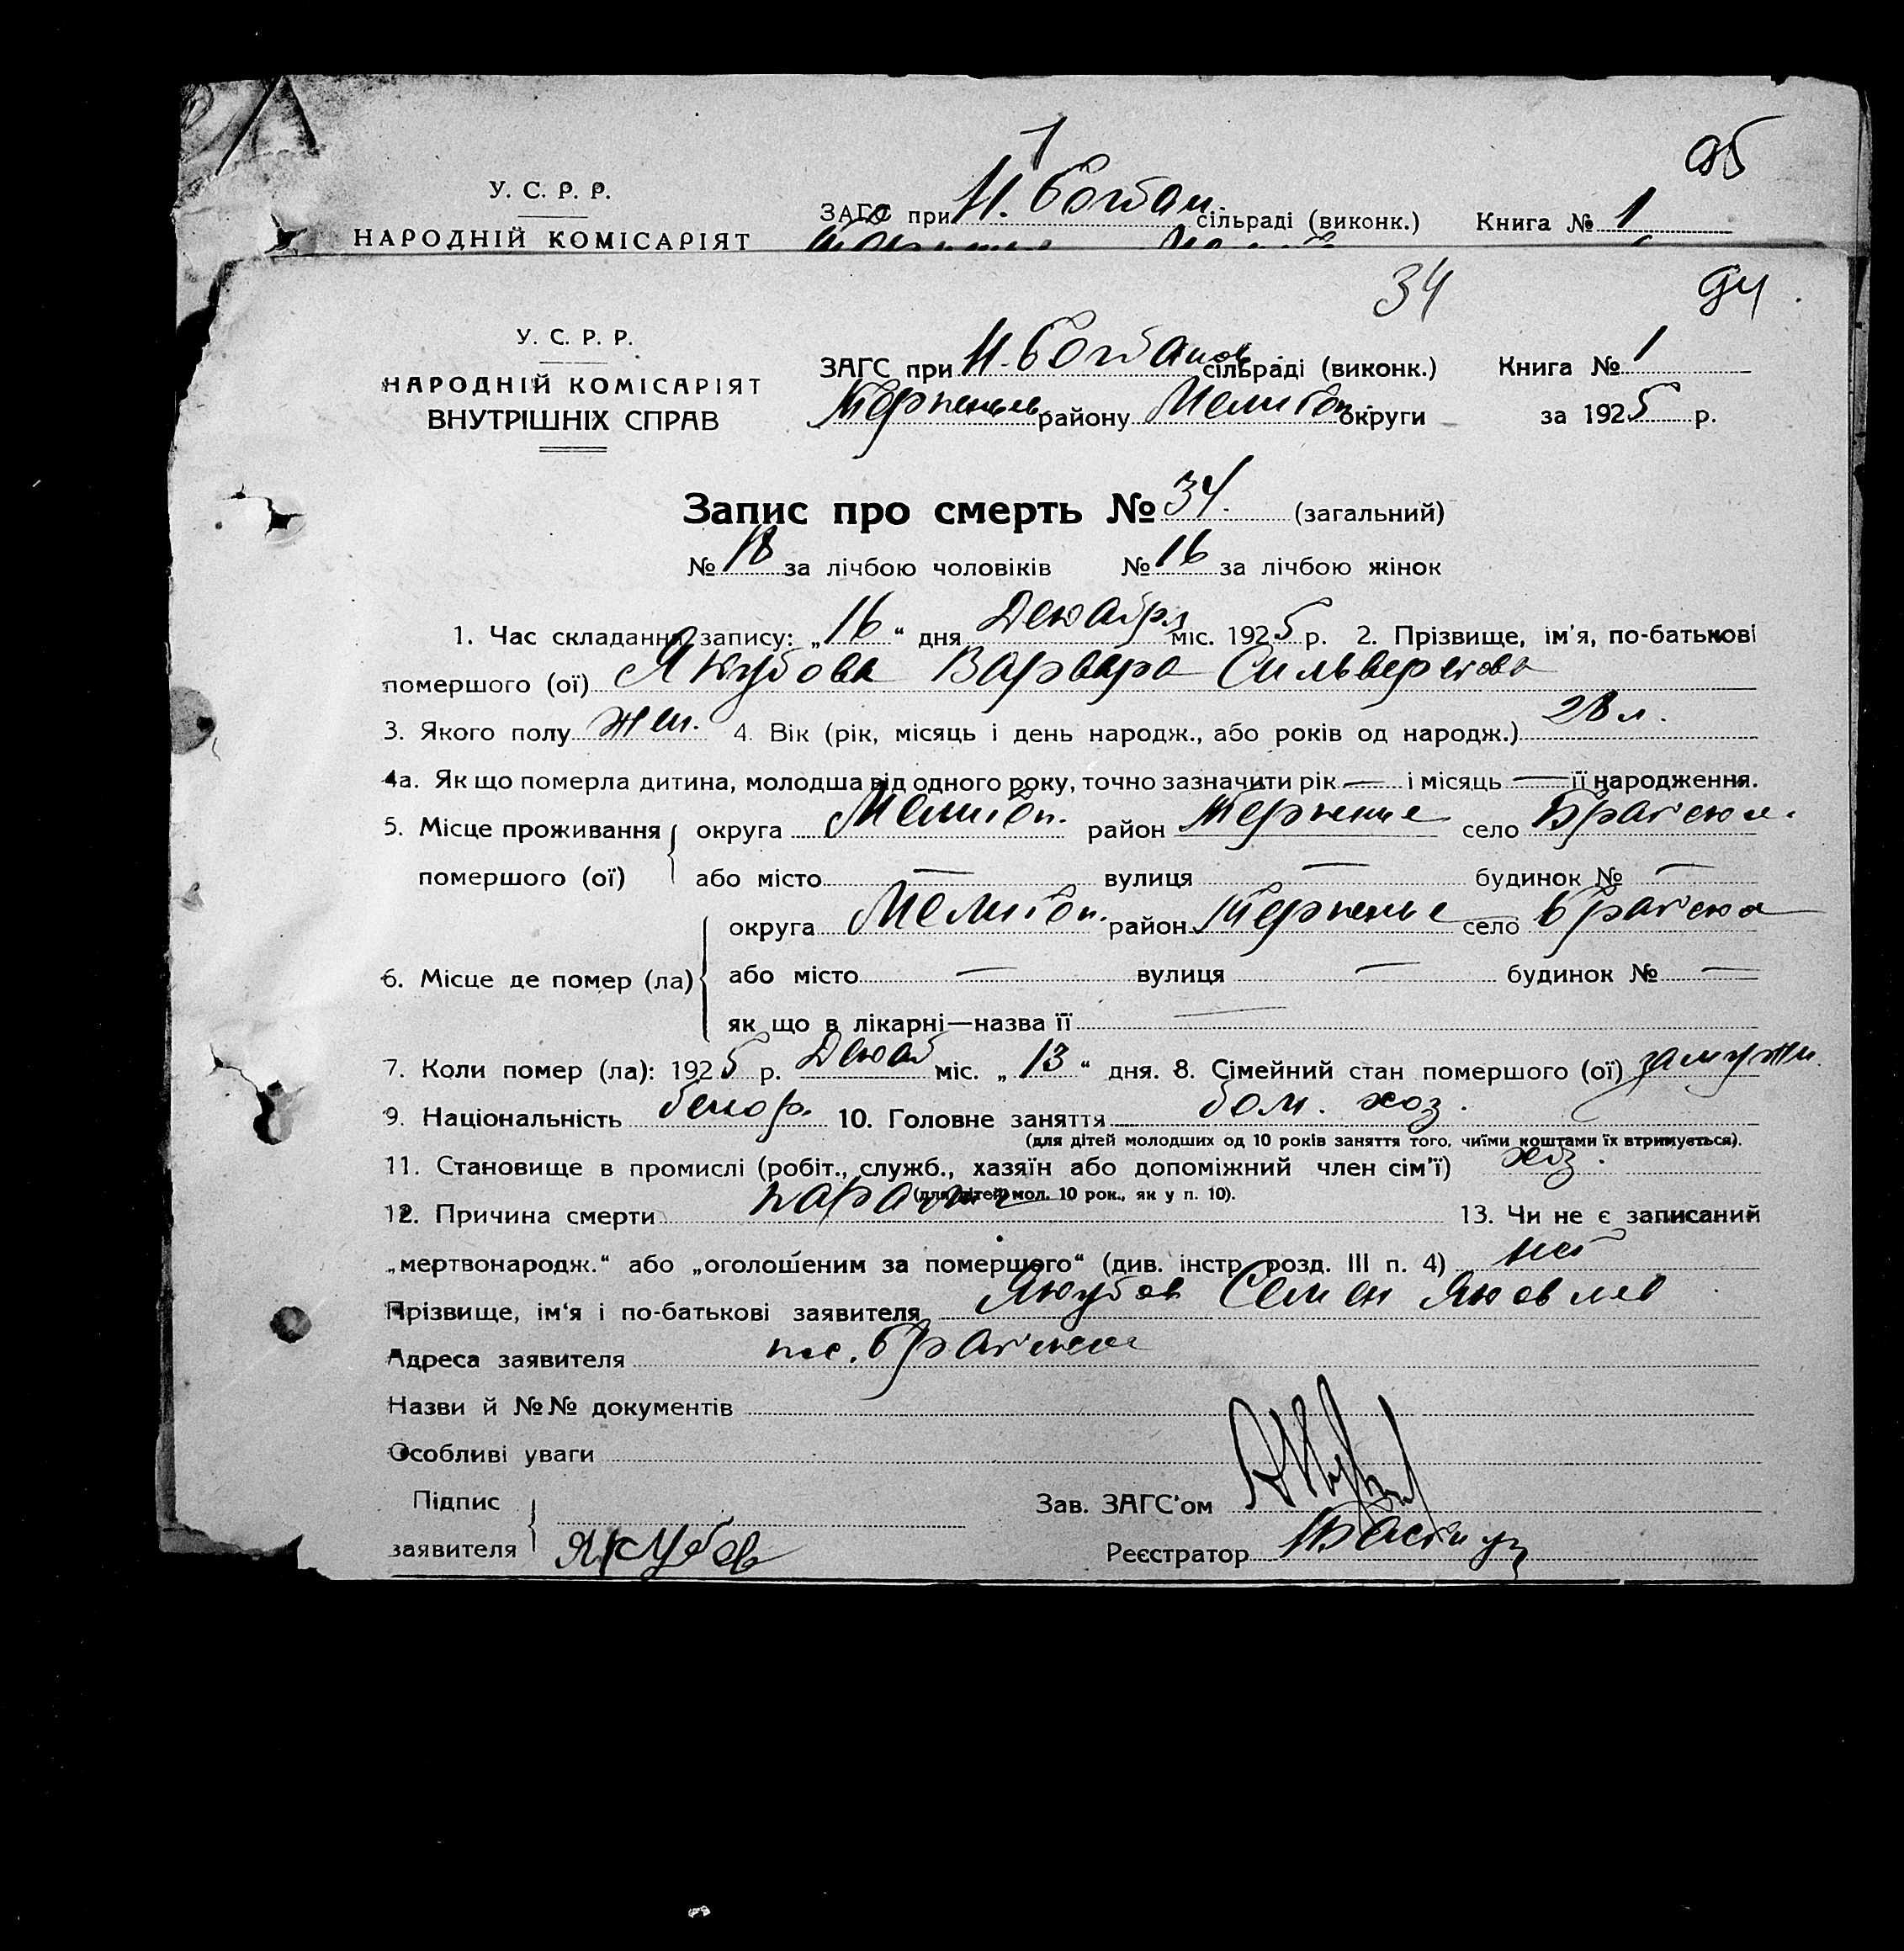 1
95
У. С. Р. Р.
ЗАГС при Н. Богдан. сільраді (виконк.) Книга № 1
НАРОДНІЙ КОМІСАРІЯТ
34 94
У. С. Р. Р.
ЗАГС при Н. Богданов. сільраді (виконк.) Книга № 1
НАРОДНІЙ КОМІСАРІЯТ
району Мелитоп. округи за 1925 р.
ВНУТРІШНІХ СПРАВ
Запис про смерть № 34. (загальний)
№ 18 за лічбою чоловіків № 16 за лічбою жінок
1. Час складання запису: „16“ дня Декабря міс. 1925 р. 2. Прізвище, ім'я, по-батькові
помершого (ої) Якубова Варвара
3. Якого полу жен. 4. Вік (рік, місяць і день народж., або років од народж.) 28 л.
4а. Як що померла дитина, молодша від одного року, точно зазначити рік — і місяць — її народження.
5. Місце проживання округа Мелитоп. район Терпение село Братск
помершого (ої) або місто — вулиця — будинок № —
округа Мелитоп. район Терпенье село Братска
6. Місце де помер (ла) або місто — вулиця — будинок № —
як що в лікарні—назва її —
7. Коли помер (ла): 1925 р. Декаб міс. „13“ дня. 8. Сімейний стан помершого (ої) замужн.
9. Національність 10. Головне заняття дом. хоз.
(для дітей молодших од 10 років заняття того, чиїми коштами їх втримується).
11. Становище в промислі (робіт., служб., хазяїн або допоміжний член сім'ї) хоз.
(для дітей мол. 10 рок., як у п. 10).
12. Причина смерти 13. Чи не є записаний
„мертвонародж.“ або „оголошеним за помершого“ (див. інстр. розд. III п. 4) нет
Прізвище, ім'я і по-батькові заявителя Якубов Семен Яковлев
Адреса заявителя
Назви й №№ документів
Особливі уваги
Підпис
Зав. ЗАГС'ом
заявителя Якубов
Реєстратор